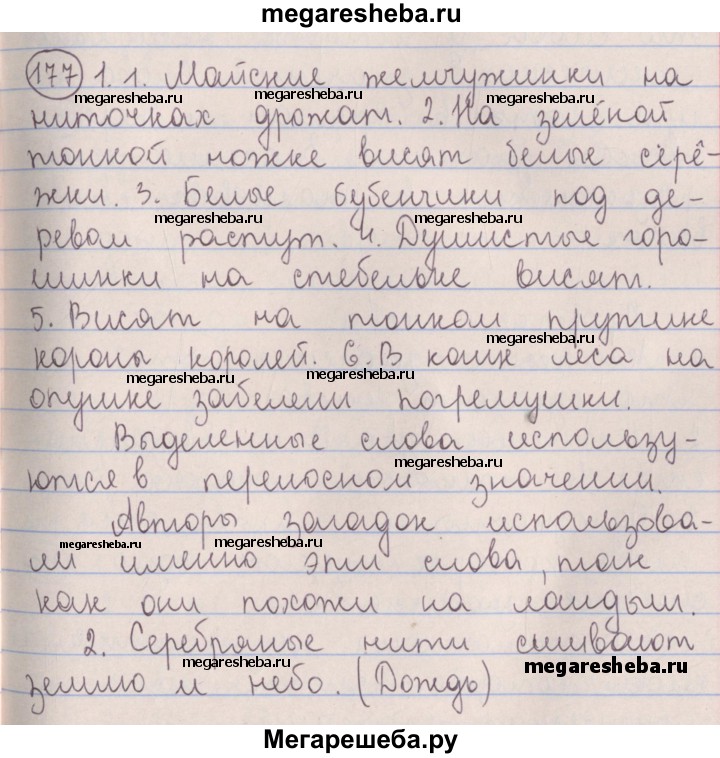 megaresheba.ru
177 1. 1. Майские жемчужинки на
megaresheba.ru megaresheba.ru
ниточках дрожат. 2. На зелёной
тонкой ножке висят белые серё-
жки. 3. Белые бубенчики под де-
megaresheba.ru megaresheba.ru
ревом растут. 4. Душистые горо-
шинки на стебельке висят.
5. Висят на тонком прутике
megaresheba.ru
короны королей. 6. В конце леса на
megaresheba.ru megaresheba.ru
опушке забелели погремушки.
Выделенные слова использу-
megaresheba.ru
ются в переносном значении.
Авторы загадок использова-
megaresheba.ru megaresheba.ru
ли именно эти слова, так
как они похожи на ландыш.
2. Серебряные нити сшивают
megaresheba.ru megaresheba.ru
землю и небо. (Дождь)
Мегарешеба.ру